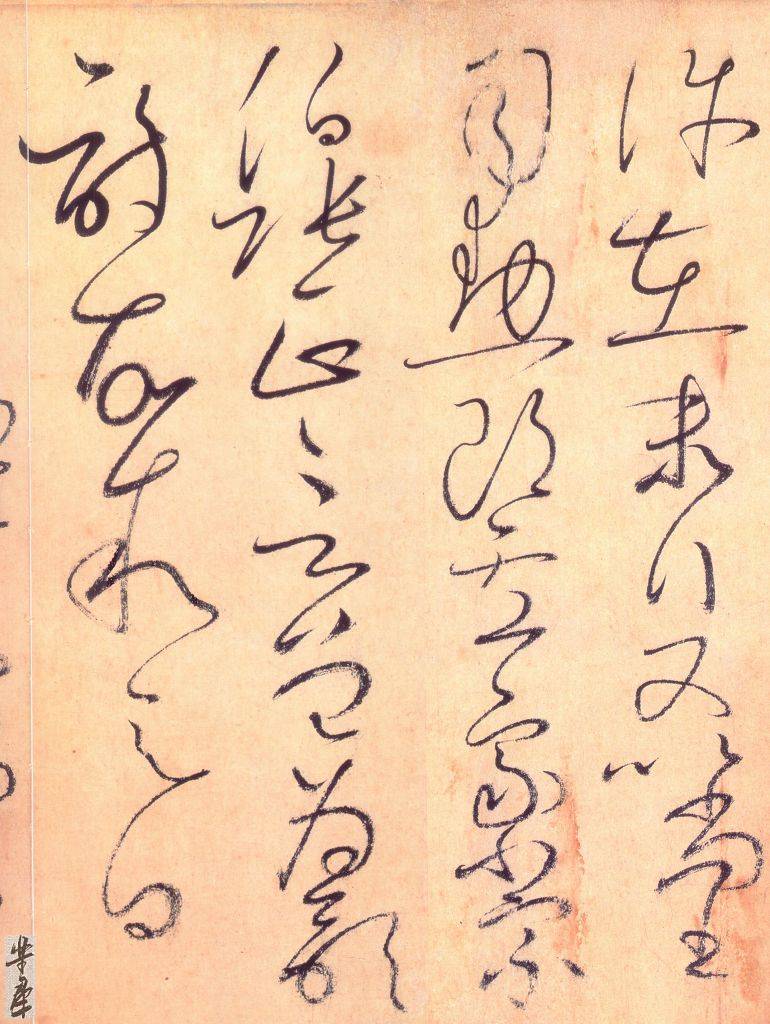 許在末行又以尚書
司勳郎盧象小宗
伯張正言曾為歌
詩故叙之曰